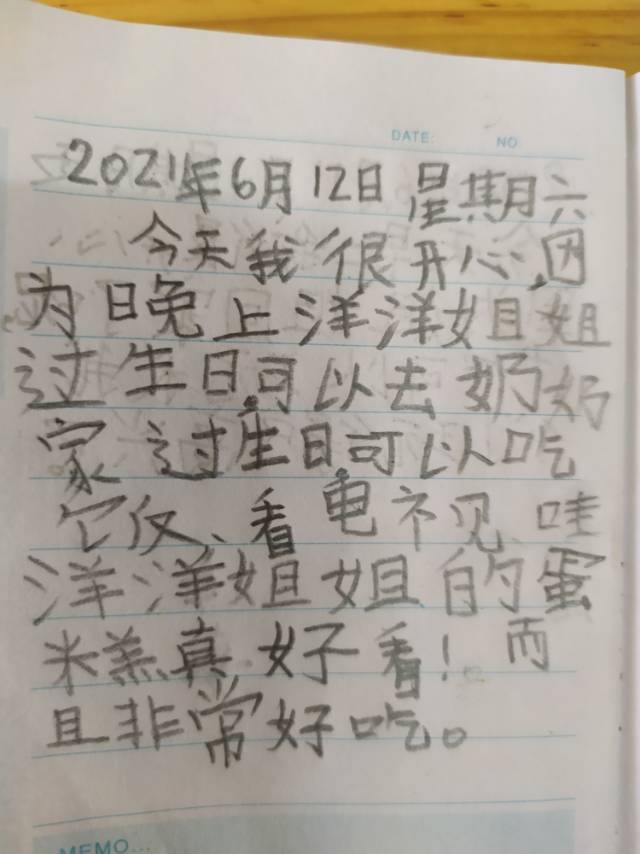 DATE: NO
2021年6月12日 星期六
今天我很开心,因
为晚上洋洋姐姐
过生日,可以去奶奶
家过生日,可以吃
饭、看电视、哇
洋洋姐姐的蛋
糕真好看!而
且非常好吃。
MEMO...